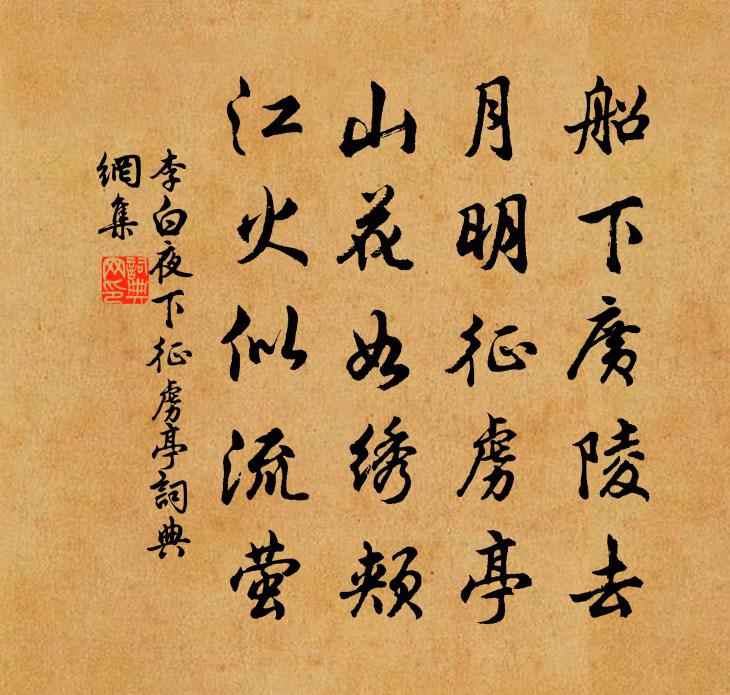 船下廣陵去
月明征虏亭
山花如绣颊
江火似流萤
李白夜下征虏亭詞典
網集
詞典網印